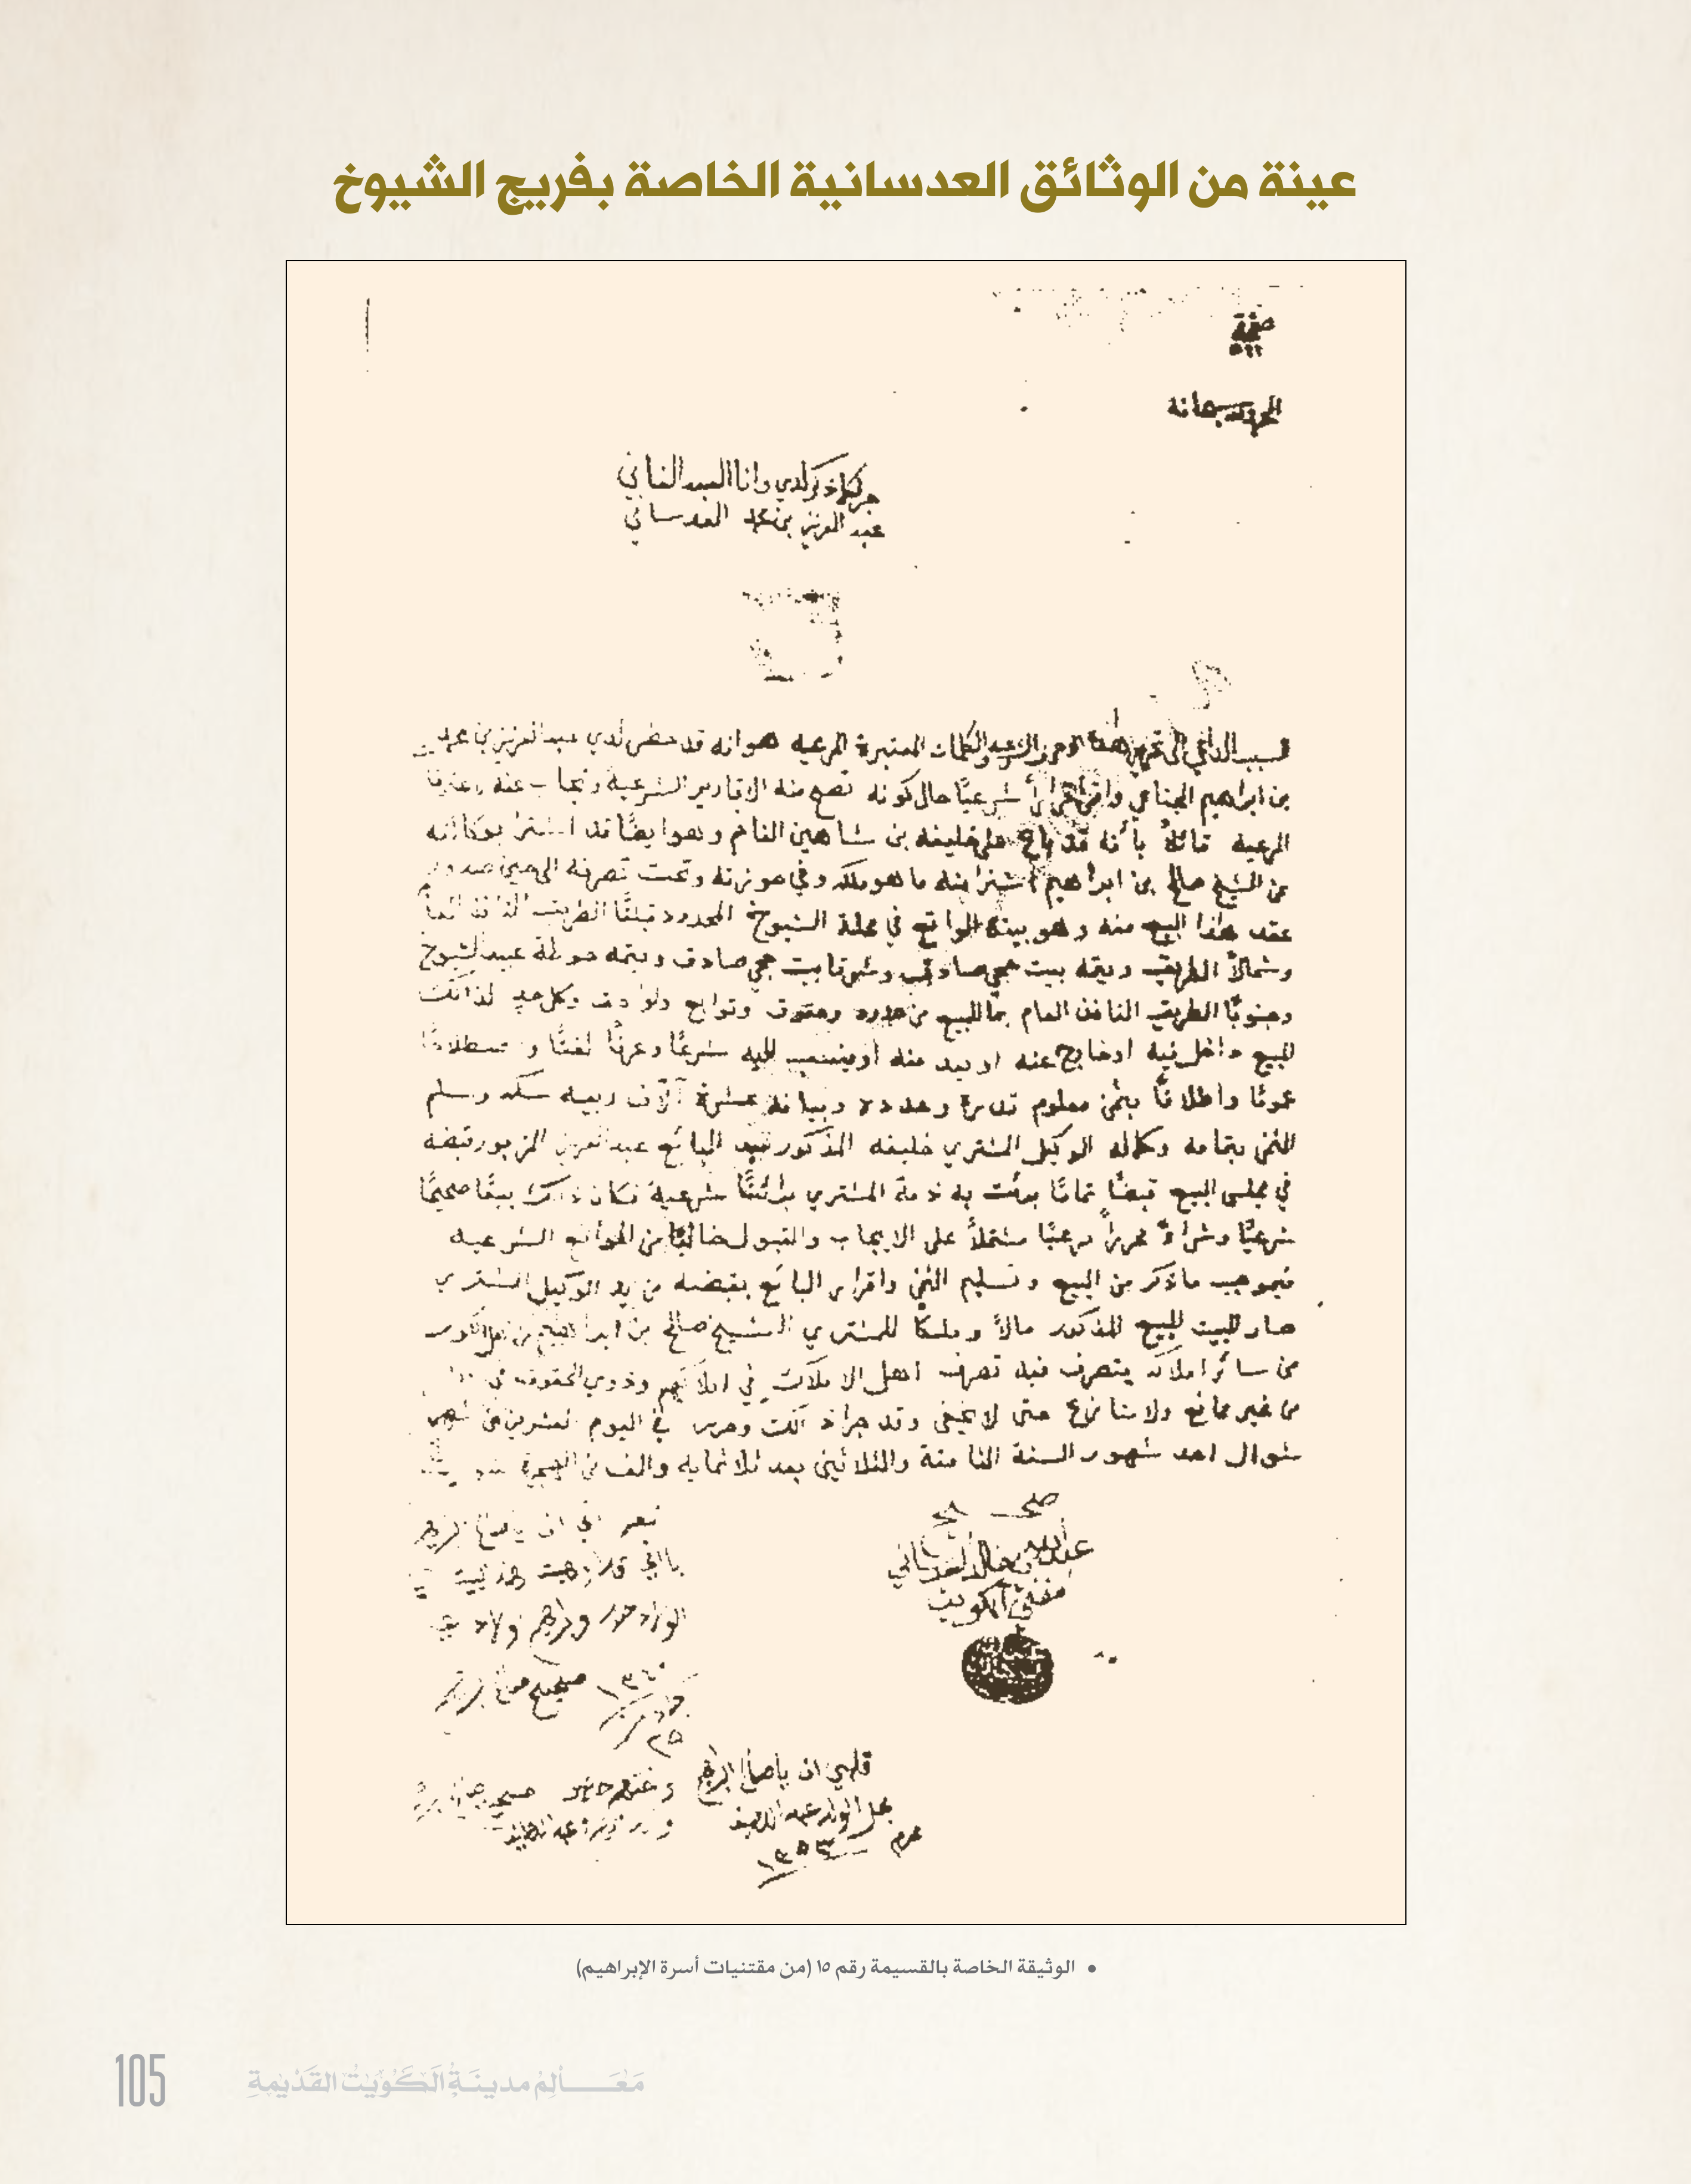 عينة من الوثائق العدسانية الخاصة بفريج الشيوخ
صحيفة
٥٦٦
الحمد لله سبحانه
جرى كما ذكر لدي وانا العبد الفاني
عبد العزيز بن محمد العدساني
السبب الداعي الى تحرير هذه الاحرف الشرعيه والكلمات المعتبرة المرعيه هو انه قد حضر لدي عبد العزيز بن محمد
بن ابراهيم الجناعي واقر اقراراً شرعيًا حال كونه تصح منه الاقارير الشرعية
المرعيه قائلاً بأنه قد باع على خليفه بن شاهين الغانم وهو ايضًا قد اشترا بوكالته
عن الشيخ صالح بن ابراهيم اشترا منه ما هو ملكه وفي حوزته وتحت تصرفه الى حين صدور
عقد هذا البيع منه وهو بيته الواقع في محلة الشيوخ المحدود قبلتًا الطريق النافذ العام
وشمالاً الطريق ويتمه بيت حجي صادق وشرقا بيت حجي صادق ويتمه حوطة عبيد الشيوخ
وجنوبًا الطريق النافذ العام بما للبيع من حدود وحقوق وتوابع ولواحق وكل حد لذالك
المبيع داخل فيه او خارج عنه او بيد منه او ينسب اليه شرعًا وعرفًا لغتًا و مسطلاحًا
عمومًا واطلاقًا بثمن معلوم قدره وعدده وبيانه عشرة آلاف ربيه سكه وسلم
الثمن بتمامه وكماله الوكيل المشتري خليفه المذكور بيد البائع عبد العزيز المزبور قبضه
في مجلس البيع قبضًا تمامًا برئت به ذمة المشتري برائتًا شرعية فكان ذالك بيعًا صحيحًا
شرعيًا وشراءً محررًا مرعيًا مشتملاً على الايجاب والقبول خاليًا من الموانع الشرعيه
فبموجب ما ذكر من البيع وتسليم الثمن واقرار البائع بقبضه من يد الوكيل المشتري
صار البيت المبيع المذكور مالاً وملكًا للمشتري الشيخ صالح بن ابراهيم
من سائر املاكه يتصرف فيه تصرف اهل الاملاك في املاكهم وذوي الحقوق في
من غير ممانع ولا منازع حتى لا يخفى وقد جرا ذالك وحرر في اليوم العشرين من شهر
شوال احد شهور السنة الثامنة والثلاثين بعد ثلاثمايه والف من الهجرة
صح
عبدالله بن خالد العدساني
مفتي الكويت
١٣٦٠
٢٥
محرم
١٣٥٣
• الوثيقة الخاصة بالقسيمة رقم ١٥ (من مقتنيات أسرة الإبراهيم)
مَعَالِمُ مدينَةُ الكُوَيْتْ القَدْيْمةِ
105